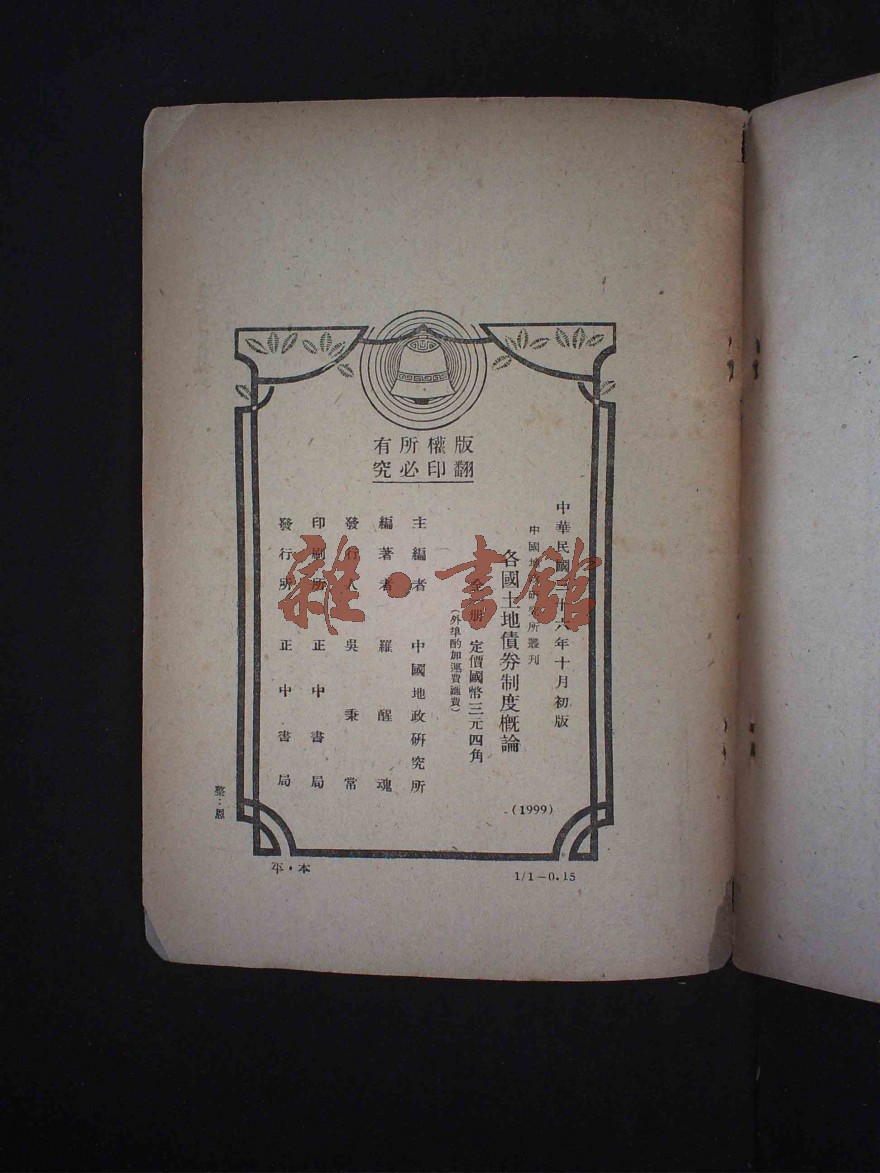 版權所有
翻印必究
中華民國三十六年十月初版
中國地政研究所叢刊
各國土地債券制度概論
全一册 定價國幣三元四角
(外埠酌加運費滙費)
主編者 中國地政研究所
編著者 羅醒魂
發行人 吳秉常
印刷所 正中書局
發行所 正中書局
(1999)
整:恩
本・平
1/1-0.15
雜・書館